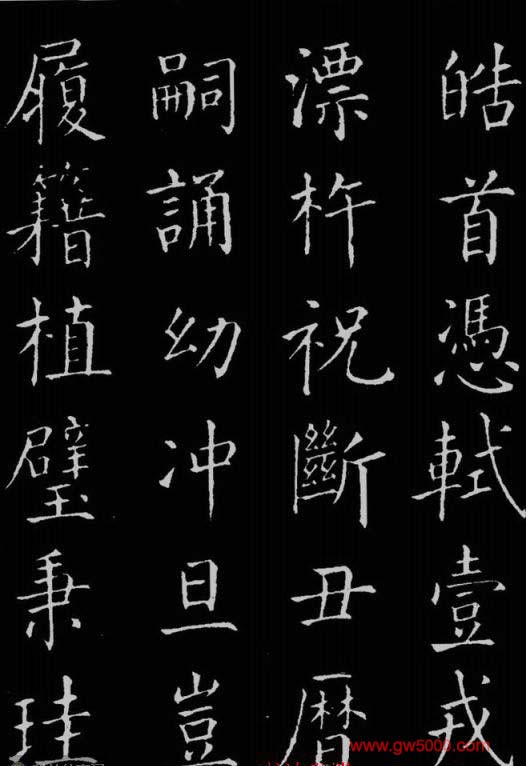 皓首憑軾壹戎
漂杵祝斷丑曆
嗣誦幼冲旦豈
履籍植璧秉珪
www.gw5000.com